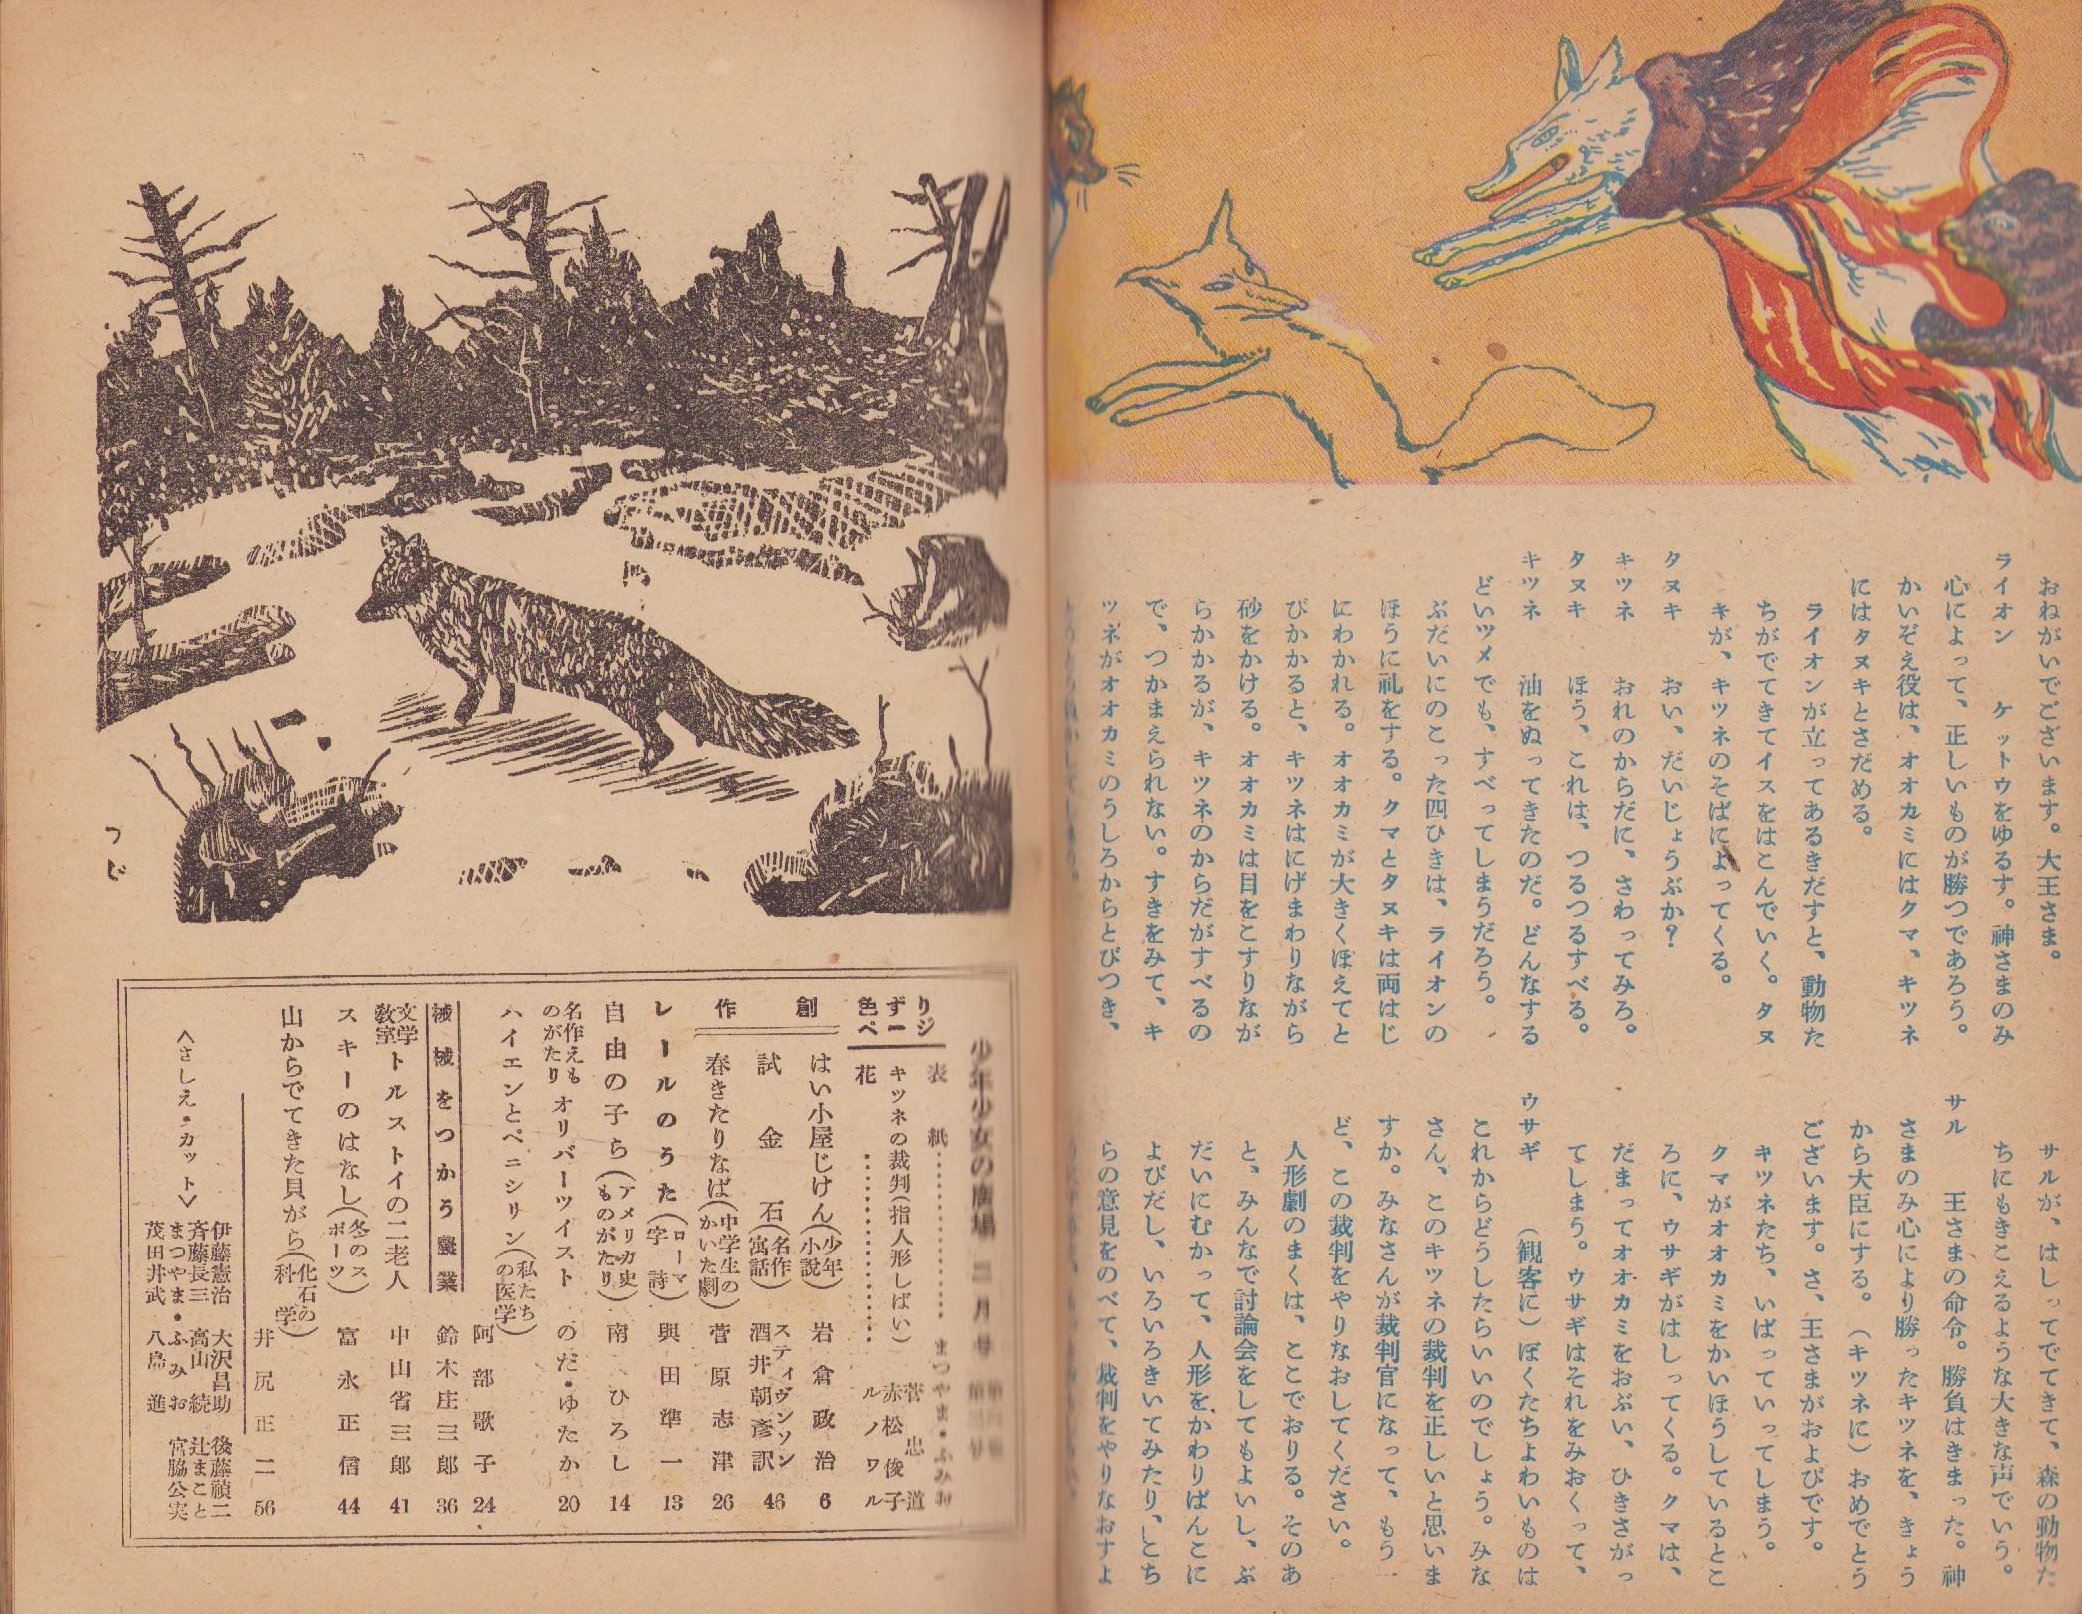 おねがいでございます。大王さま。
ライオン　ケットウをゆるす。神さまのみ
心によって、正しいものが勝つであろう。
かいぞえ役は、オオカミにはクマ、キツネ
にはタヌキとさだめる。
ライオンが立ってあるきだすと、動物た
ちがでてきてイスをはこんでいく。タヌ
キが、キツネのそばによってくる。
タヌキ　おい、だいじょうぶか?
キツネ　おれのからだに、さわってみろ。
タヌキ　ほう、これは、つるつるすべる。
キツネ　油をぬってきたのだ。どんなする
どいツメでも、すべってしまうだろう。
ぶだいにのこった四ひきは、ライオンの
ほうに礼をする。クマとタヌキは両はじ
にわかれる。オオカミが大きくほえてと
びかかると、キツネはにげまわりながら
砂をかける。オオカミは目をこすりなが
らかかるが、キツネのからだがすべるの
で、つかまえられない。すきをみて、キ
ツネがオオカミのうしろからとびつき、
サルが、はしってでてきて、森の動物た
ちにもきこえるような大きな声でいう。
サル　王さまの命令。勝負はきまった。神
さまのみ心により勝ったキツネを、きょう
から大臣にする。（キツネに）おめでとう
ございます。さ、王さまがおよびです。
キツネたち、いばっていってしまう。
クマがオオカミをかいほうしているとこ
ろに、ウサギがはしってくる。クマは、
だまってオオカミをおぶい、ひきさがっ
てしまう。ウサギはそれをみおくって、
ウサギ　（観客に）ぼくたちよわいものは
これからどうしたらいいのでしょう。みな
さん、このキツネの裁判を正しいと思いま
すか。みなさんが裁判官になって、もう一
ど、この裁判をやりなおしてください。
人形劇のまくは、ここでおりる。そのあ
と、みんなで討論会をしてもよいし、ぶ
だいにむかって、人形をかわりばんこに
よびだし、いろいろきいてみたり、こち
らの意見をのべて、裁判をやりなおすよ
つじ
少年少女の広場 二月号
表紙 まつやま・ふみお
色ずり
ページ
キツネの裁判（指人形しばい） 菅忠道 赤松俊子
花 ルノワル
創作
はい小屋じけん（少年小説） 岩倉政治 6
試金石（名作寓話） スティヴンソン 酒井朝彦訳 46
春きたりなば（中学生のかいた劇） 菅原志津 26
レールのうた（ローマ字詩） 與田準一 13
自由の子ら（アメリカ史ものがたり） 南ひろし 14
名作えものがたり オリバーツイスト のだ・ゆたか 20
ハイエンとペニシリン（私たちの医学） 阿部歌子 24
機械をつかう農業 鈴木庄三郎 36
文学教室 トルストイの二老人 中山省三郎 41
スキーのはなし（冬のスポーツ） 富永正信 44
山からでてきた貝がら（化石の科学） 井尻正二 56
〈さしえ・カット〉
伊藤憲治 大沢昌助 後藤禎二
斉藤長三 高山続 辻まこと
まつやま・ふみお 宮脇公実
茂田井武 八島進